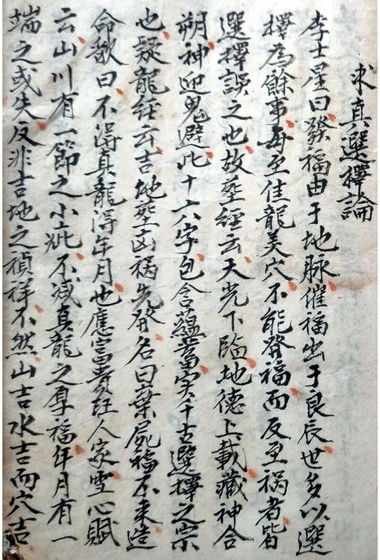 求真選擇論
李士星曰發福由于地脉催福出于良辰世多以選
擇為餘事每至佳龍美穴不能發福而反至禍者皆
選擇誤之也故塟經云天光下臨地德上載藏神合
朔神迎鬼避此十六字包含蘊蓄实千古選擇之宗
也疑龍經云吉地塟凶禍先發名曰棄屍福不来造
命歌曰不得真龍得年月也應富貴旺人家雪心賦
云山川有一節之小疵不减真龍之厚福年月有一
端之或失反非吉地之禎祥不然山吉水吉而穴吉